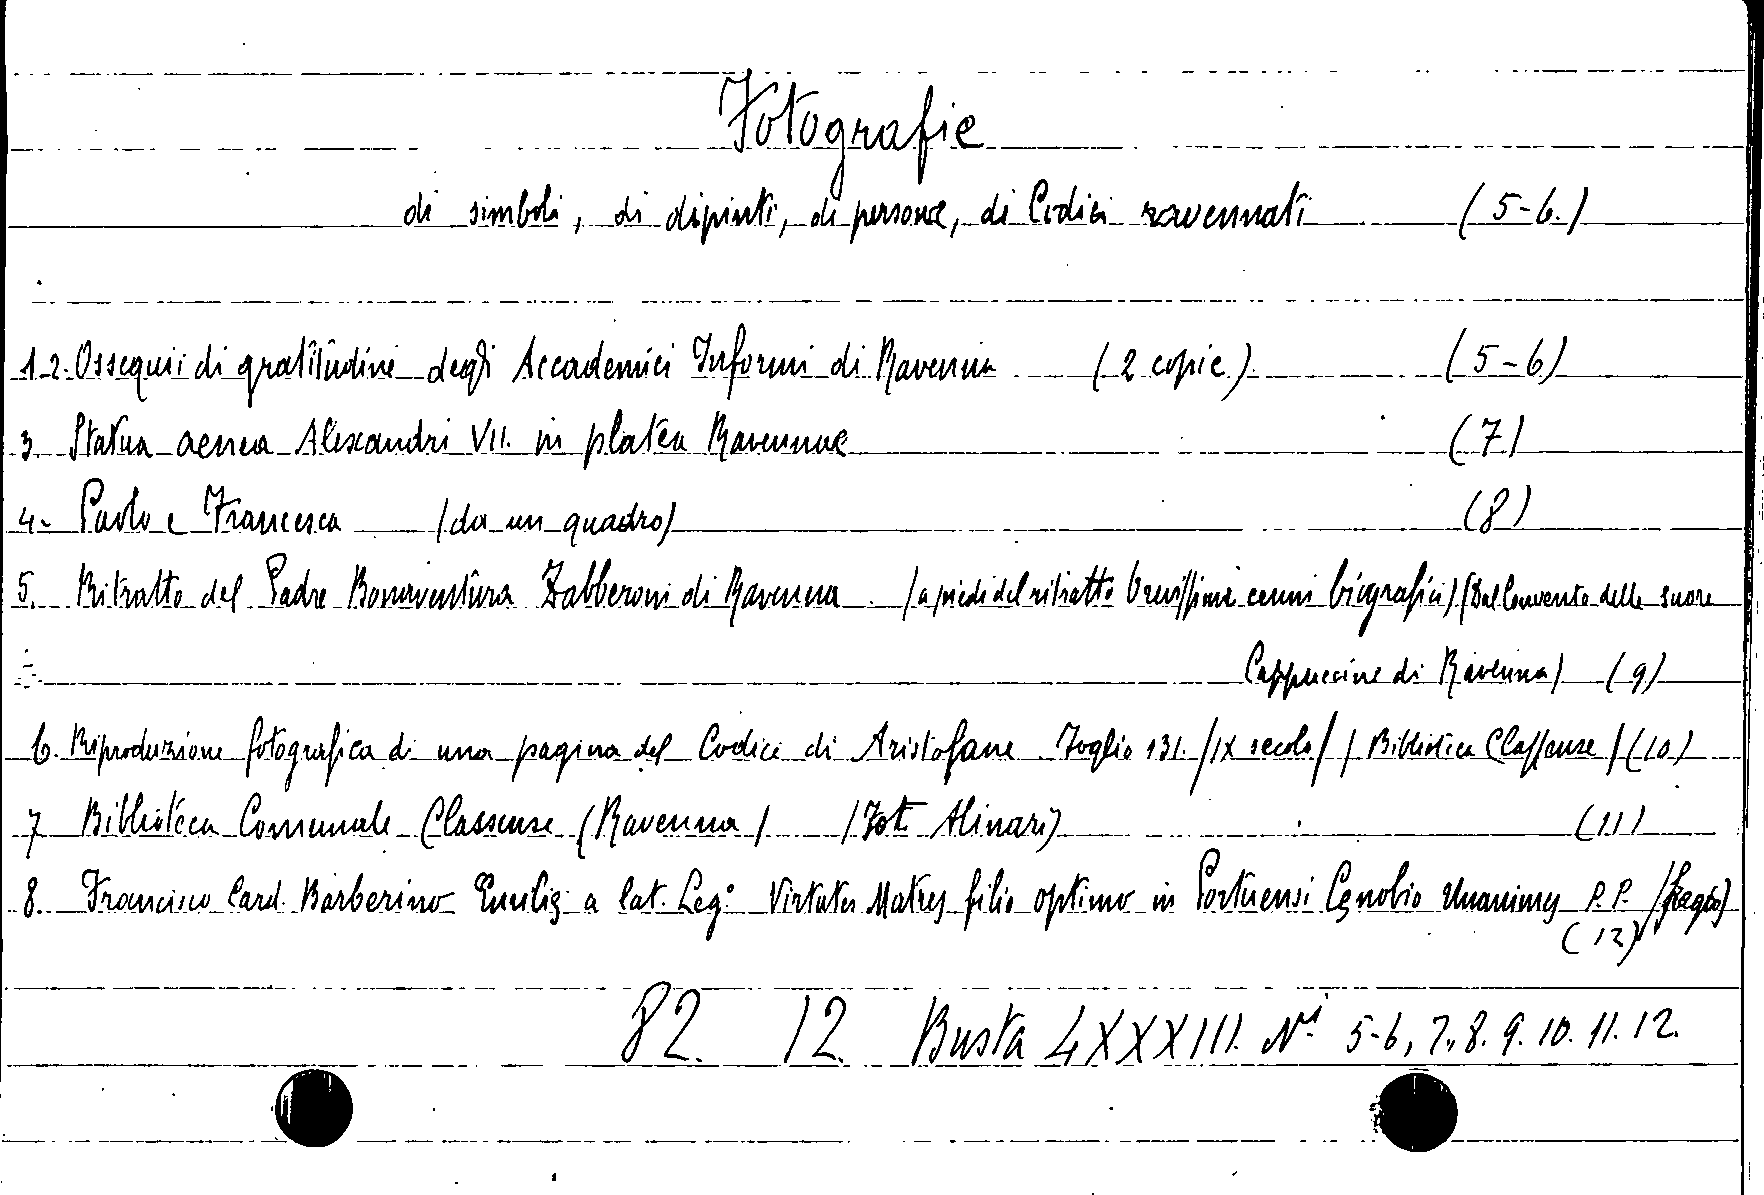 Fotografie
di simboli, di dipinti, di persone, di Codici ravennati (5-6.)
1.2. Ossequii di gratitudine degli Accademici Informi di Ravenna (2 copie) (5-6)
3. Statua aenea Alexandri VII. in platea Ravennae (7)
4- Paolo e Francesca (da un quadro) (8)
5. Ritratto del Padre Bonaventura Zabberoni di Ravenna (a piedi del ritratto brevissimi cenni biografici) (Dal Convento delle suore
Cappuccine di Ravenna) (9)
6. Riproduzione fotografica di una pagina del Codice di Aristofane Foglio 131. (IX secolo) (Biblioteca Classense) (10)
7 Biblioteca Comunale Classense (Ravenna) (Fot. Alinari) (11)
8. Francisco Card. Barberino a lat. Leg° filio optimo in Portuensi P.P. (fregio)
(12)
82. 12. Busta LXXXIII. Ni 5-6, 7., 8. 9. 10. 11. 12.